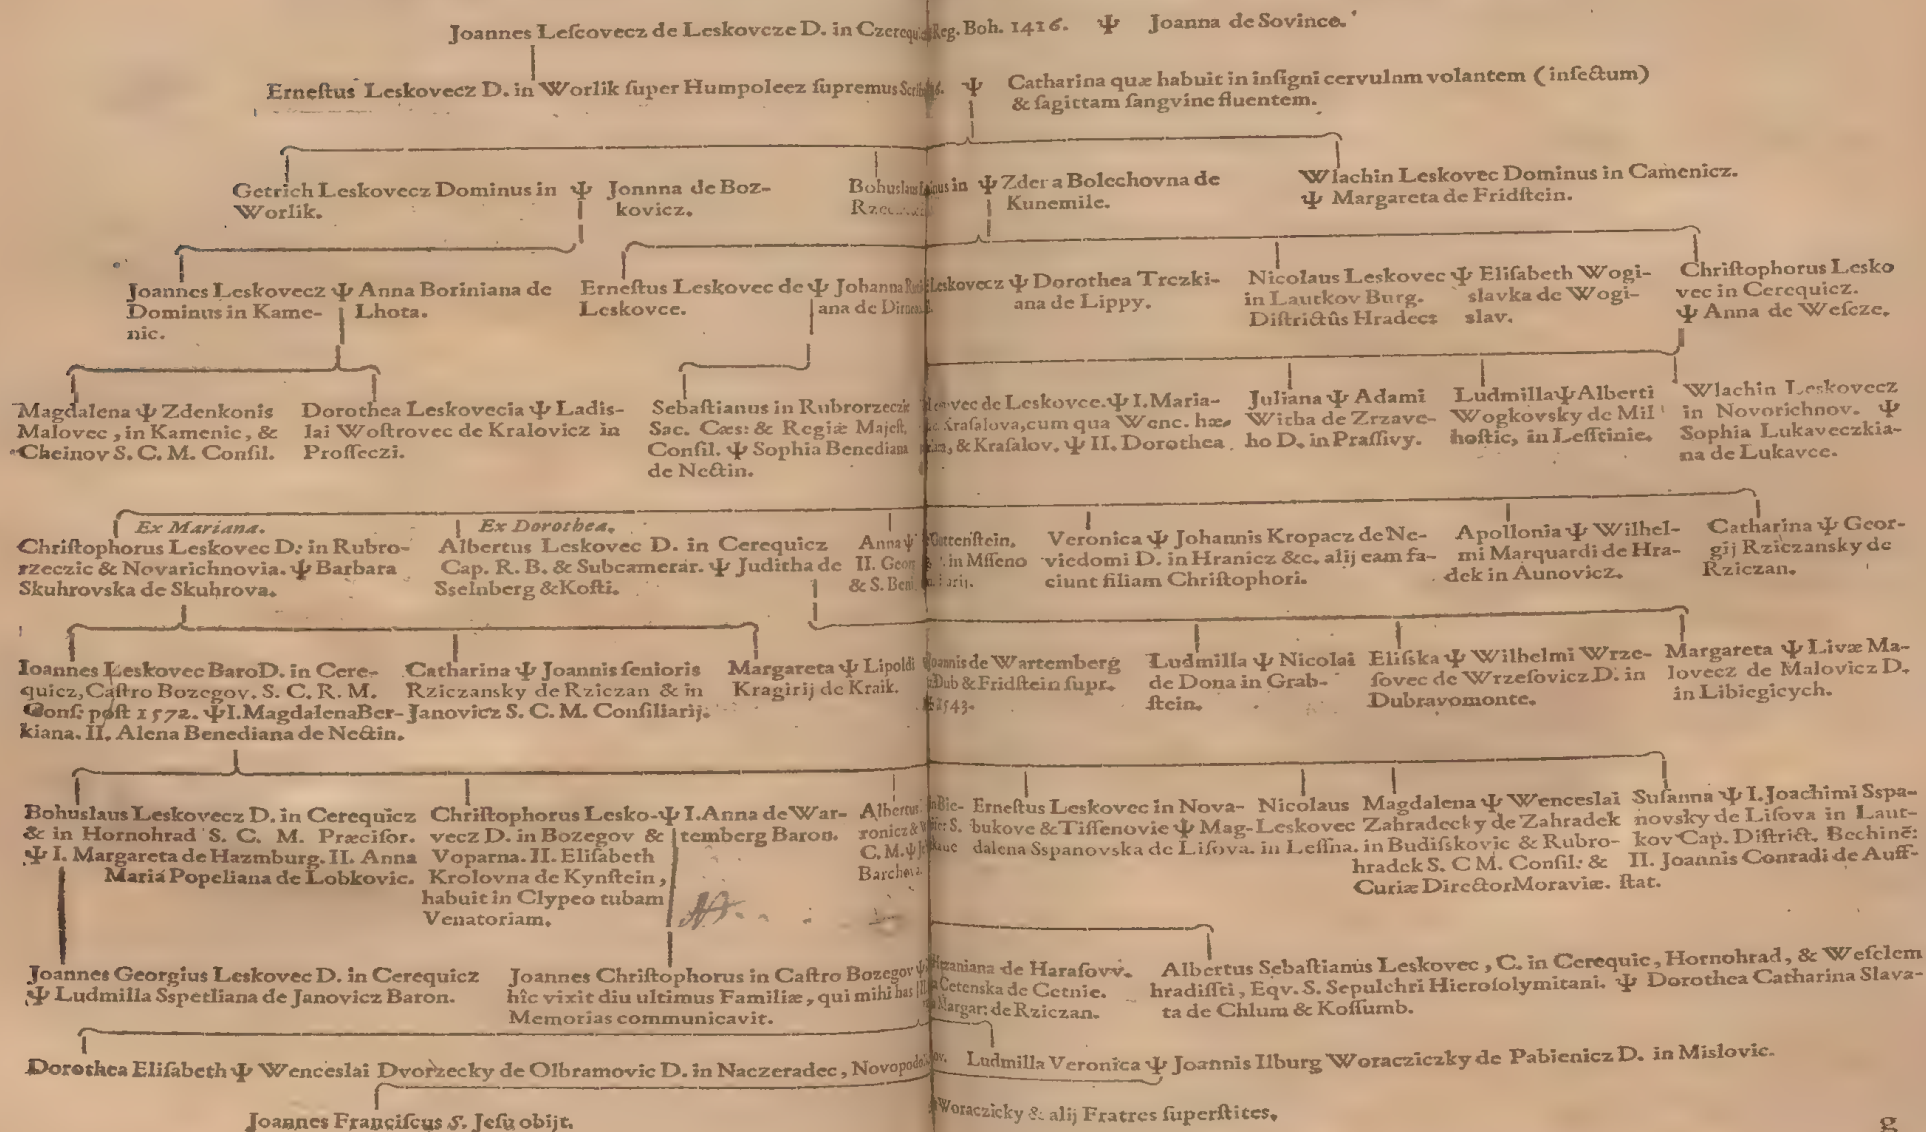 Joannes Leſcovecz de Leskovcze D. in Czerequic Reg. Boh. 1416. Ψ Joanna de Sovince.
Erneſtus Leskovecz D. in Worlik ſuper Humpoleez ſupremus Ψ Catharina quæ habuit in inſigni cervulnm volantem (inſectum)
& ſagittam ſangvine fluentem.
Getrich Leskovecz Dominus in
Worlik.
Ψ Jonnna de Boz-
kovicz.
Bohuslaus in
Ψ Zdera Bolechovna de
Kunemile.
Wlachin Leskovec Dominus in Camenicz.
Ψ Margareta de Fridſtein.
Joannes Leskovecz
Dominus in Kame-
nic.
Ψ Anna Boriniana de
Lhota.
Erneſtus Leskovec de
Leskovce.
Ψ Johanna
ana de
Leskovecz Ψ Dorothea Trczki-
ana de Lippy.
Nicolaus Leskovec
in Lautkov Burg.
Diſtrictûs Hradecz
Ψ Eliſabeth Wogi-
slavka de Wogi-
slav.
Chriſtophorus Lesko
vec in Cerequicz.
Ψ Anna de Weſcze.
Magdalena Ψ Zdenkonis
Malovec, in Kamenic, &
Cheinov S. C. M. Conſil.
Dorothea Leskovecia Ψ Ladis-
lai Woſtrovec de Kralovicz in
Proſſeczi.
Sebaſtianus in Rubrorzeczic
Sac. Cæs: & Regiæ Majeſt.
Conſil. Ψ Sophia Benediana
de Nectin.
vec de Leskovce. Ψ I. Maria-
de Kraſalova, cum qua Wenc. hæ-
& Kraſalov. Ψ II. Dorothea
Juliana Ψ Adami
Witba de Zrzave-
ho D. in Praſſivy.
Ludmilla Ψ Alberti
Wogkovsky de Mil
hoſtic, in Leſſtinie.
Wlachin Leskovecz
in Novorichnov. Ψ
Sophia Lukaveczkia-
na de Lukavce.
Ex Mariana.
Chriſtophorus Leskovec D. in Rubro-
rzeczic & Novarichnovia. Ψ Barbara
Skuhrovska de Skuhrova.
Ex Dorothea.
Albertus Leskovec D. in Cerequicz
Cap. R. B. & Subcamerar. Ψ Juditha de
Sselnberg & Koſti.
Anna Ψ
II. Georg
& S. Beni.
in Mſſeno
Veronica Ψ Johannis Kropacz de Ne-
viedomi D. in Hranicz &c. alij eam fa-
ciunt filiam Chriſtophori.
Apollonia Ψ Wilhel-
mi Marquardi de Hra-
dek in Aunovicz.
Catharina Ψ Geor-
gij Rziczansky de
Rziczan.
Ioannes Leskovec Baro D. in Cere-
quicz, Caſtro Bozegov. S. C. R. M.
Conſ: poſt 1572. Ψ I. Magdalena Ber-
kiana. II. Alena Benediana de Nectin.
Catharina Ψ Joannis ſenioris
Rziczansky de Rziczan & in
Janovicz S. C. M. Conſiliarij.
Margareta Ψ Lipoldi
Kragirij de Kraik.
Joannis de Wartemberg
Dub & Fridſtein ſupr.
1543.
Ludmilla Ψ Nicolai
de Dona in Grab-
ſtein.
Eliſska Ψ Wilhelmi Wrze-
ſovec de Wrzeſovicz D. in
Dubravomonte.
Margareta Ψ Livæ Ma-
lovecz de Malovicz D.
in Libiegicych.
Bohuslaus Leskovecz D. in Cerequicz
& in Hornohrad S. C. M. Præciſor.
Ψ I. Margareta de Hazmburg. II. Anna
Mariá Popeliana de Lobkovic.
Chriſtophorus Lesko-
vecz D. in Bozegov &
Voparna. II. Eliſabeth
Krolovna de Kynſtein,
habuit in Clypeo tubam
Venatoriam.
Ψ I. Anna de War-
temberg Baron.
Albertus
ronicz &
C. M. Ψ
Barchova
Erneſtus Leskovec in Nova-
bukove & Tiſſenovie Ψ Mag-
dalena Sspanovska de Liſova.
Nicolaus
Leskovec
in Leſſna.
Magdalena Ψ Wenceslai
Zahradecky de Zahradek
in Budiſskovic & Rubro-
hradek S. C M. Conſil: &
Curiæ Director Moraviæ.
Suſanna Ψ I. Joachimi Sspa-
novsky de Liſova in Laut-
kov Cap. Diſtrict. Bechinē:
II. Joannis Conradi de Auff-
ſtat.
Joannes Georgius Leskovec D. in Cerequicz
Ψ Ludmilla Sspetliana de Janovicz Baron.
Joannes Chriſtophorus in Caſtro Bozegov Ψ
hîc vixit diu ultimus Familiæ, qui mihi has
Memorias communicavit.
de Haraſovv.
Cetenska de Cetnie.
Margar: de Rziczan.
Albertus Sebaſtianus Leskovec, C. in Cerequic, Hornohrad, & Weſelem
hradiſſti, Eqv. S. Sepulchri Hieroſolymitani. Ψ Dorothea Catharina Slava-
ta de Chlum & Koſſumb.
Dorothea Eliſabeth Ψ Wenceslai Dvorzecky de Olbramovic D. in Naczeradec,
Ludmilla Veronica Ψ Joannis Ilburg Woracziczky de Pabienicz D. in Mislovic.
Joannes Franciſcus S. Jeſu obijt.
Woraczicky & alij Fratres ſuperſtites.
g